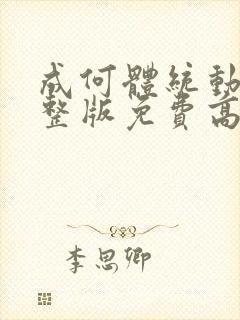 成何體統動
整版免費高
李思卿